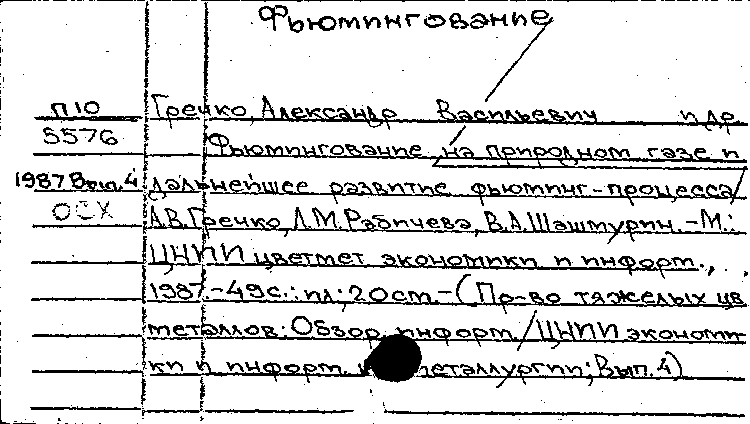 Фьюмингование
П10 Гречко, Александр Васильевич и др.
5576 Фьюмингование на природном газе и
1987 Вып.4 дальнейшее развитие фьюминг-процесса/
ОСХ А.В.Гречко, Л.М.Рабичева, В.А.Шашмурин.-М.:
ЦНИИ цветмет экономики и информ.,
1987.-49с.: ил; 20см.-(Пр-во тяжелых цв.
металлов: Обзор. информ./ЦНИИ экономи-
ки и информ. металлургии; Вып.4)